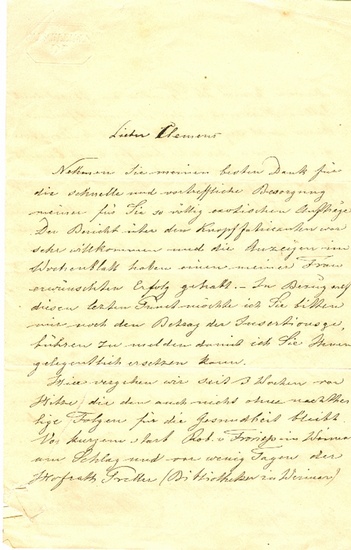 Lieber Clemens
Nehmen Sie meinen besten Dank für
die schnelle und vortreffliche Besorgung
meiner für Sie so völlig exotischen Aufträge
Der Bericht über den Knopffabricanten war
sehr willkommen und die Anzeigen im
Wochenblatt haben einen meiner Frau
erwünschten Erfolg gehabt. – In Bezug auf
diesen letzten Punct möchte ich Sie bitten
mir noch den Betrag der Insertionsge,
bühren zu melden damit ich Sie Ihnen
gelegentlich ersetzen kann.
Hier vergehen wir seit 3 Wochen vor
Hitze, die denn auch nicht ohne nachthei
lige Folgen für die Gesundheit bleibt.
Vor kurzem starb Rob. v Froriep in Weimar
am Schlag und vor wenig Tagen der
Hofrath (Bibliothekar in Weimar)